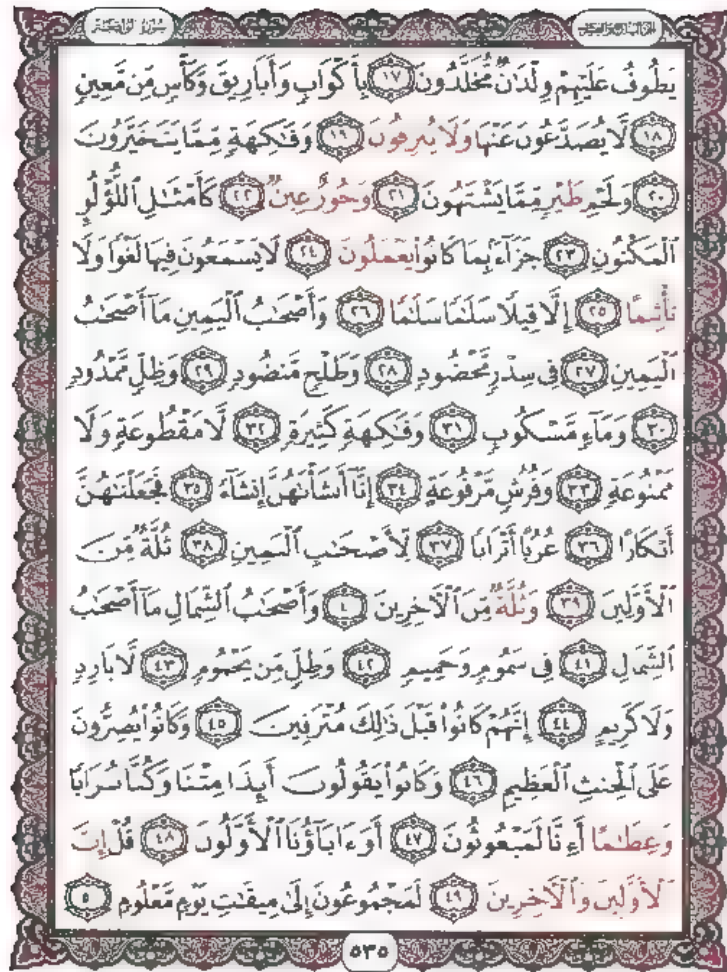 سُورَةُ الوَاقِعَةِ
الجزء السابع والعشرون
يَطُوفُ عَلَيْهِمْ وِلْدَٰنٌ مُّخَلَّدُونَ ١٧ بِأَكْوَابٍ وَأَبَارِيقَ وَكَأْسٍ مِّن مَّعِينٍ
١٨ لَّا يُصَدَّعُونَ عَنْهَا وَلَا يُنزِفُونَ ١٩ وَفَٰكِهَةٍ مِّمَّا يَتَخَيَّرُونَ
٢٠ وَلَحْمِ طَيْرٍ مِّمَّا يَشْتَهُونَ ٢١ وَحُورٌ عِينٌ ٢٢ كَأَمْثَٰلِ ٱللُّؤْلُوِٕ
ٱلْمَكْنُونِ ٢٣ جَزَآءًۢ بِمَا كَانُوا۟ يَعْمَلُونَ ٢٤ لَا يَسْمَعُونَ فِيهَا لَغْوًا وَلَا
تَأْثِيمًا ٢٥ إِلَّا قِيلًا سَلَٰمًا سَلَٰمًا ٢٦ وَأَصْحَٰبُ ٱلْيَمِينِ مَآ أَصْحَٰبُ
ٱلْيَمِينِ ٢٧ فِى سِدْرٍ مَّخْضُودٍ ٢٨ وَطَلْحٍ مَّنضُودٍ ٢٩ وَظِلٍّ مَّمْدُودٍ
٣٠ وَمَآءٍ مَّسْكُوبٍ ٣١ وَفَٰكِهَةٍ كَثِيرَةٍ ٣٢ لَّا مَقْطُوعَةٍ وَلَا
مَمْنُوعَةٍ ٣٣ وَفُرُشٍ مَّرْفُوعَةٍ ٣٤ إِنَّآ أَنشَأْنَٰهُنَّ إِنشَآءً ٣٥ فَجَعَلْنَٰهُنَّ
أَبْكَارًا ٣٦ عُرُبًا أَتْرَابًا ٣٧ لِّأَصْحَٰبِ ٱلْيَمِينِ ٣٨ ثُلَّةٌ مِّنَ
ٱلْأَوَّلِينَ ٣٩ وَثُلَّةٌ مِّنَ ٱلْءَاخِرِينَ ٤٠ وَأَصْحَٰبُ ٱلشِّمَالِ مَآ أَصْحَٰبُ
ٱلشِّمَالِ ٤١ فِى سَمُومٍ وَحَمِيمٍ ٤٢ وَظِلٍّ مِّن يَحْمُومٍ ٤٣ لَّا بَارِدٍ
وَلَا كَرِيمٍ ٤٤ إِنَّهُمْ كَانُوا۟ قَبْلَ ذَٰلِكَ مُتْرَفِينَ ٤٥ وَكَانُوا۟ يُصِرُّونَ
عَلَى ٱلْحِنثِ ٱلْعَظِيمِ ٤٦ وَكَانُوا۟ يَقُولُونَ أَئِذَا مِتْنَا وَكُنَّا تُرَابًا
وَعِظَٰمًا أَءِنَّا لَمَبْعُوثُونَ ٤٧ أَوَءَابَآؤُنَا ٱلْأَوَّلُونَ ٤٨ قُلْ إِنَّ
ٱلْأَوَّلِينَ وَٱلْءَاخِرِينَ ٤٩ لَمَجْمُوعُونَ إِلَىٰ مِيقَٰتِ يَوْمٍ مَّعْلُومٍ ٥٠
٥٣٥